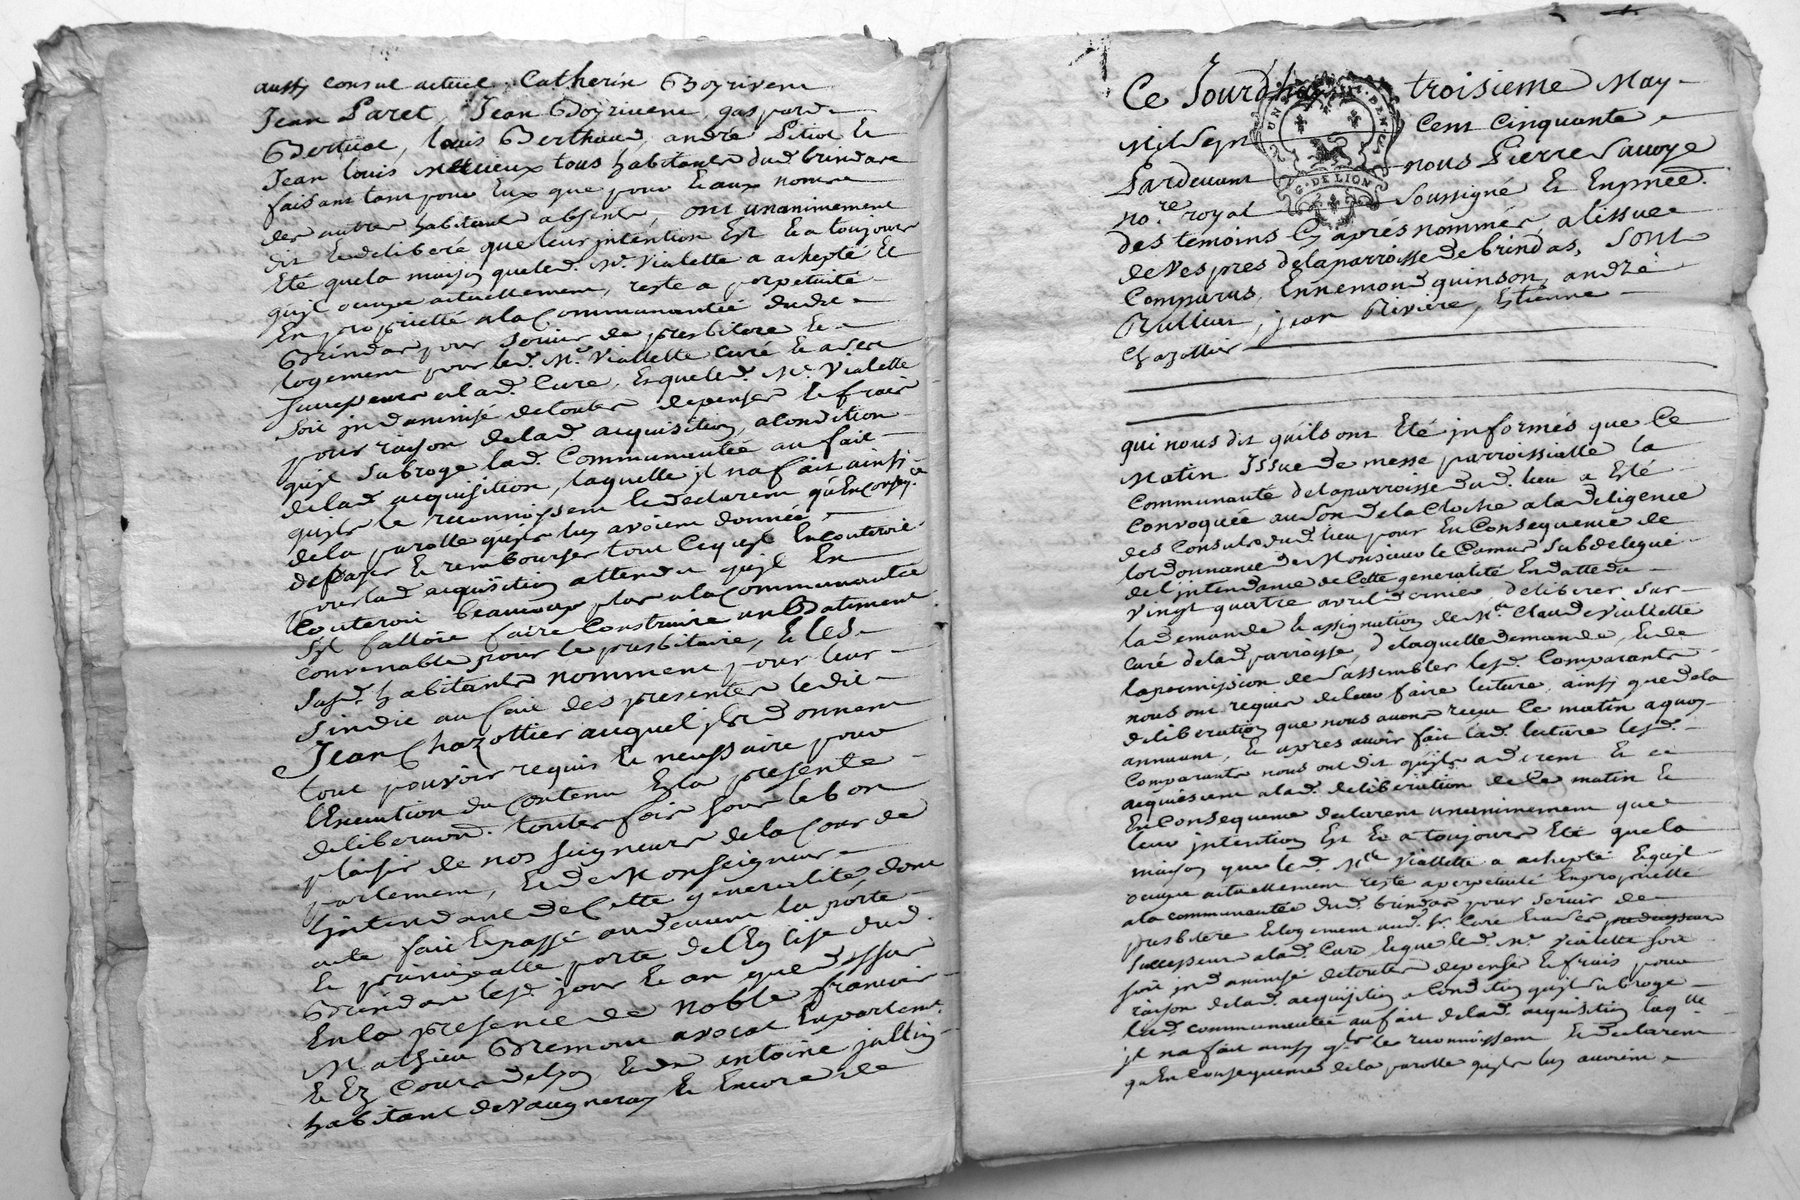 aussy consul actuel, Catherin Boyrivent
Jean Paret, Jean Boyrivent, gaspard
Bertuat, louis Berthaud, andré Pitiot et
Jean louis tous habitants dud. brindas
faisant tant pour Eux que pour Et aux noms
des autres habitants absents, ont unanimement
dit Et deliberé que leur jntention Est Et a toujours
Eté que la maison que led. Mr. Vialette a achepté Et
qujl occupe actuellement, reste a perpetuité
En proprietté a la Communautée dudit
Brindas pour servir de presbitere Et
logement pour led. Mr. Viallette curé Et a ses
successeurs a lad. Cure, Et que led. Mr. Vialette
soit jndamnisé de toutes depenses Et frais
pour raison de lad. acquisition, a Condition
qujl subroge lad. Communautée au fait
de lad. acquisition, laquelle jl na fait ainsi
qujls le reconnoissent Et declarent qu'En conseq.ce
de la parolle qujls luy avoient donnée
de payer Et rembourser tout Ce qujl En couteroit
pour lad. acquisition attendu qujl En
Couteroit beaucoup plus a la Communautée
Sjl falloit faire Construire un Batiment
convenable pour le presbitaire, Et les
susd. habitants nomment pour leur
sindic au fait des presentes ledit
Jean Chazottier auquel jls donnent
tout pouvoir requis Et necessaire pour
l'Execution du Contenu En la presente
deliberaon. toutes fois sous le bon
plaisir de nos seigneurs de la Cour de
parlement, Et de Monseigneur
Lintendant de Cette generalité, dont
acte fait Et passé au devant la porte
Et principalle porte de l'Eglise dud.
Brindas lesd. jour Et an que dessus
En la presence de noble francois
Mathieu Bremont avocat En parlemt.
Et Ez Cours de Lyon Et de sr. antoine jullin
habitant de Vaugneray Et Encore de
Ce Jourd'huy troisieme May
Mil Sept Cent Cinquante
Pardevant nous Pierre Sauvoye
no.re royal Soussigné Et En presce.
des temoins Cy aprés nommés, a lissue
de Vespres de la parroisse de brindas, Sont
Comparus, Ennemond quinson, andré
Rullier, jean Riviere, Etienne
Chazottier
G. DE LION
qui nous dit qu'ils ont Eté jnformés que Ce
Matin Issue de messe parroissialle la
Communauté de la parroisse dud. lieu a Eté
Convoquée au son de la Cloche a la diligence
des Consuls dud. lieu pour En Consequence de
lordonnance de Monsieur le Camus Subdelegué
de l'jntendance de Cette generalité En datte du
vingt quatre avril dernier, deliberer sur
la demande Et assignation de Mre. Claude Viallette
curé de lad. parroisse, de laquelle demande, Et de
la permission de sassembler lesd. Comparants
nous ont requis de leur faire lecture, ainsi que de la
deliberation que nous avons receu Ce matin a quoy
annuant, Et apres avoir fait lad. lecture lesd.
Comparants nous ont dit qujls adherent Et
acquiescent a lad. deliberation de Ce matin Et
En Consequence declarent unanimement que
leur jntention Est Et a toujours Eté que la
maison que led. Mre. Viallette a achepté Et qujl
occupe actuellement reste a perpetuité En proprietté
a la communautée dud. brindas pour servir de
presbitere Et logement aud. sr. Curé Et a ses predecesseurs
successeurs a lad. Cure, Et que led. Mr. Vialette soit
soit jndamnisé de toutes depenses Et frais pour
raison de lad. acquisition a Condition qujl subroge
lad. communautée au fait de lad. acquisition laqlle
jl na fait ainsy qujls le reconnoissent, Et declarent
qu'En Consequence de la parolle qujls luy avoient